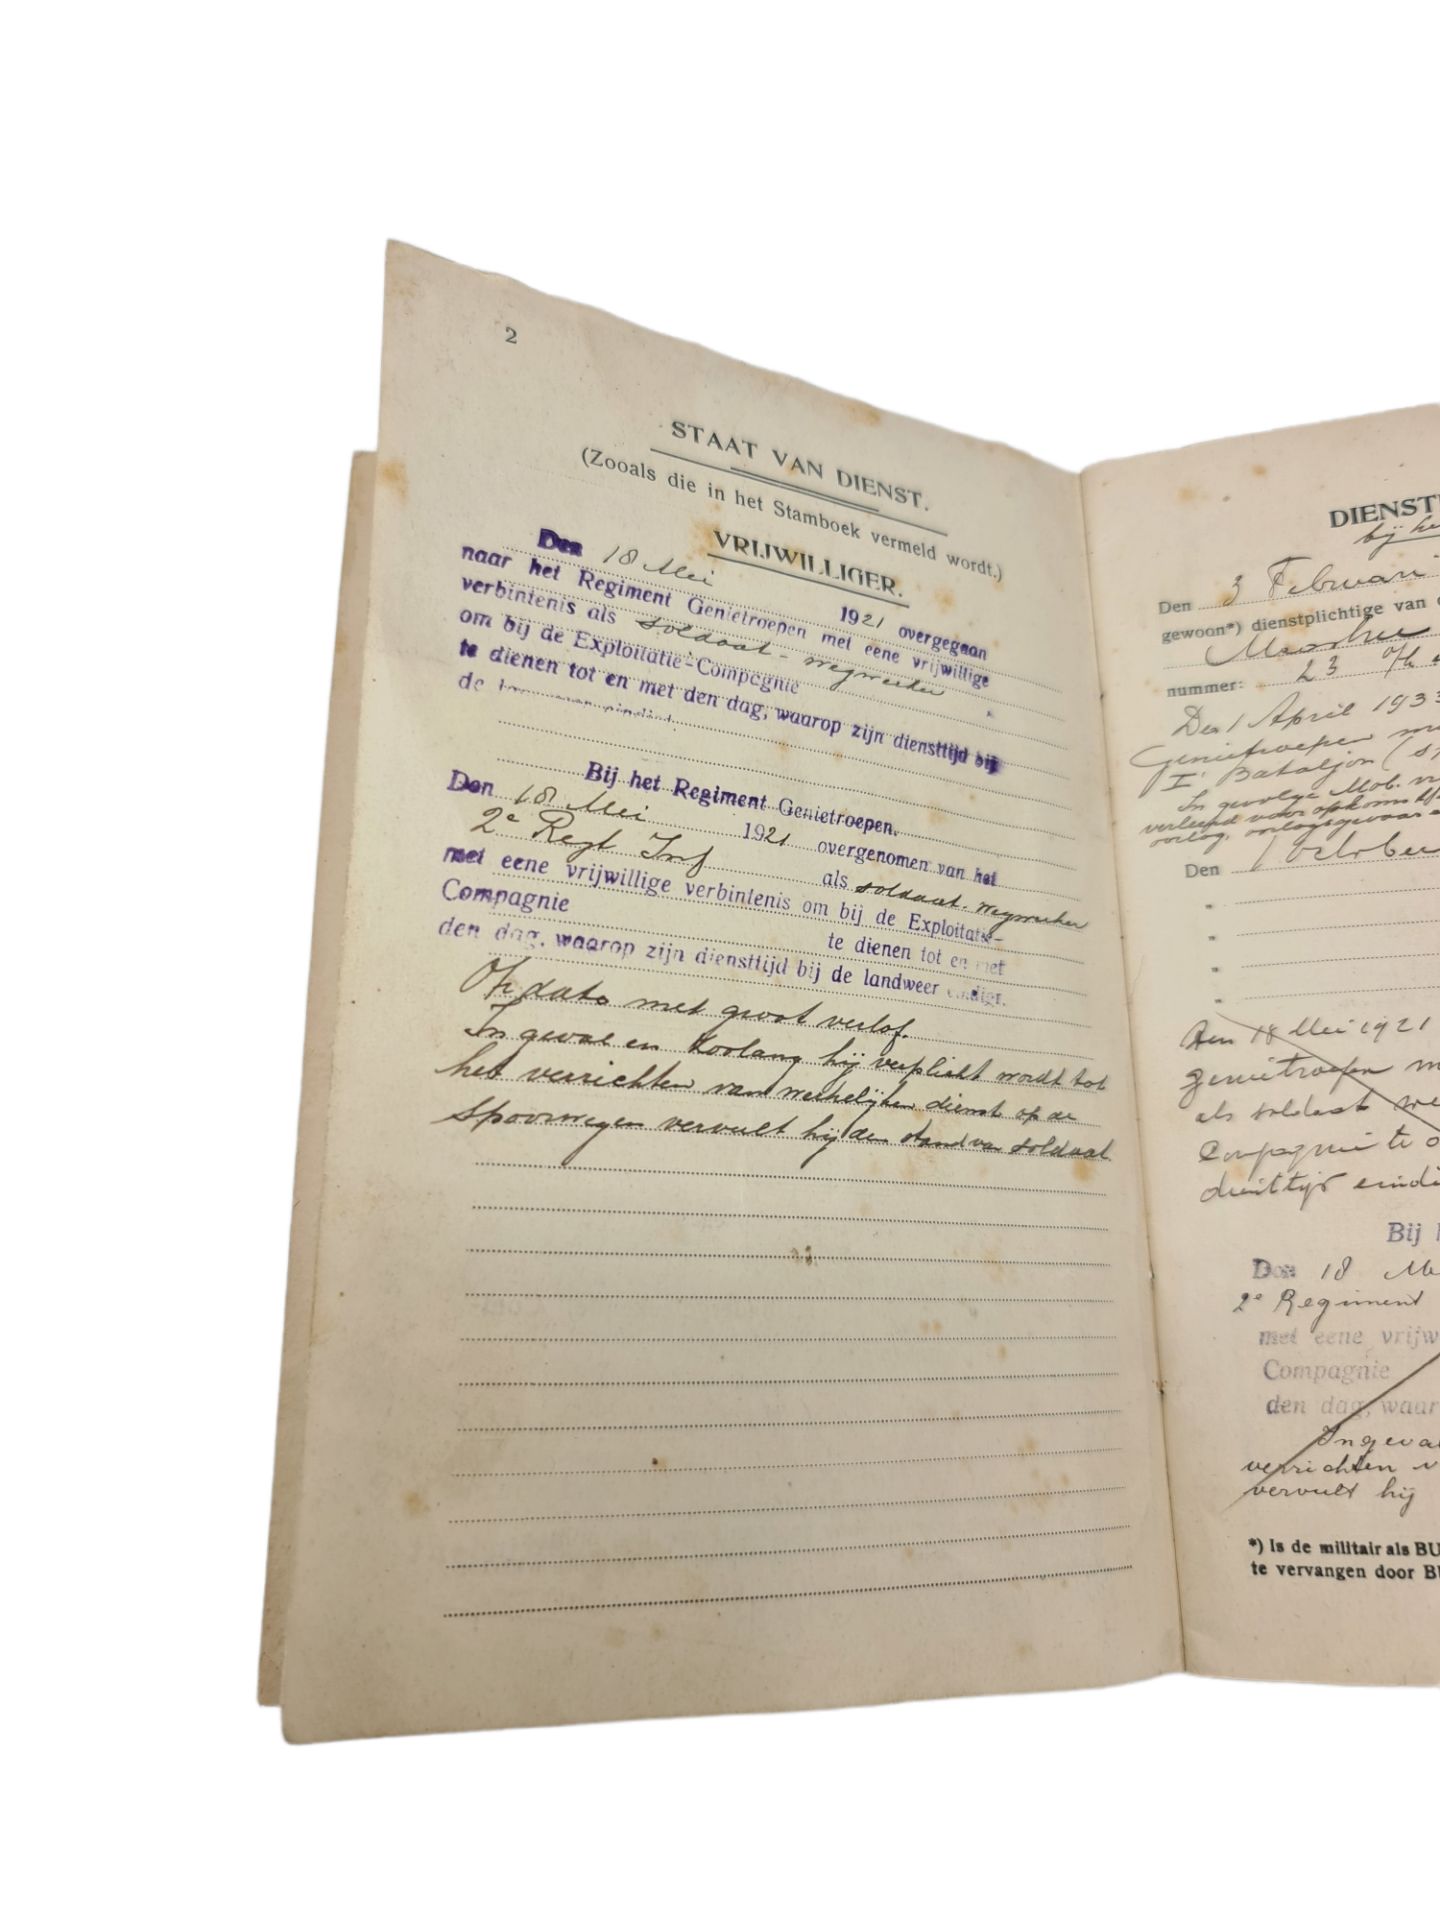 2
STAAT VAN DIENST.
(Zooals die in het Stamboek vermeld wordt.)
VRIJWILLIGER.
Den 18 Mei 1921 overgegaan
naar het Regiment Genietroepen met eene vrijwillige
verbintenis als soldaat - wegwerker
om bij de Exploitatie-Compagnie
te dienen tot en met den dag, waarop zijn diensttijd bij
de eindigt
Bij het Regiment Genietroepen.
Den 18 Mei 1921 overgenomen van het
2e Regt Inf als soldaat-wegwerker
met eene vrijwillige verbintenis om bij de Exploitatie-
Compagnie te dienen tot en met
den dag, waarop zijn diensttijd bij de landweer eindigt.
Op dato met groot verlof.
In geval en zoolang hij verplicht wordt tot
het verrichten van werkelijken dienst op de
spoorwegen vervult hij den stand van soldaat.
DIENST
bij he
Den 3 Februari
gewoon*) dienstplichtige van
nummer: 23
Den 1 April 1933
Genietroepen
I Bataljon
In gevolge Mob.
verleend voor opkomst
oorlog, oorlogsgevaar
Den 1 October
Den 18 Mei 1921
genietroepen m
als soldaat we
Compagnie te d
diensttijd eindi
Bij h
Den 18 Me
2e Regiment
met eene vrijw
Compagnie
den dag, waar
Ingeval
verrichten v
vervult hij
*) Is de militair als BU
te vervangen door B